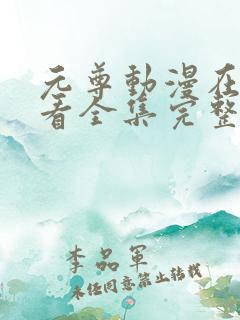 元尊動漫在
看全集完整
李品軍
未经同意禁止转载